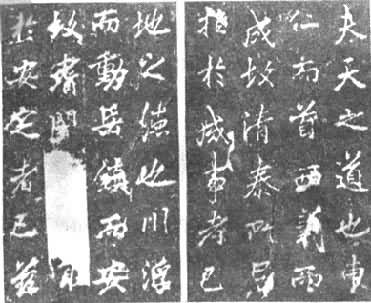 夫天之道也東
仁而首西義而
成故清泰所居
指於咸事者已
地之德也川浮
而動岳鎮而安
故耆闍
於安定者已茲